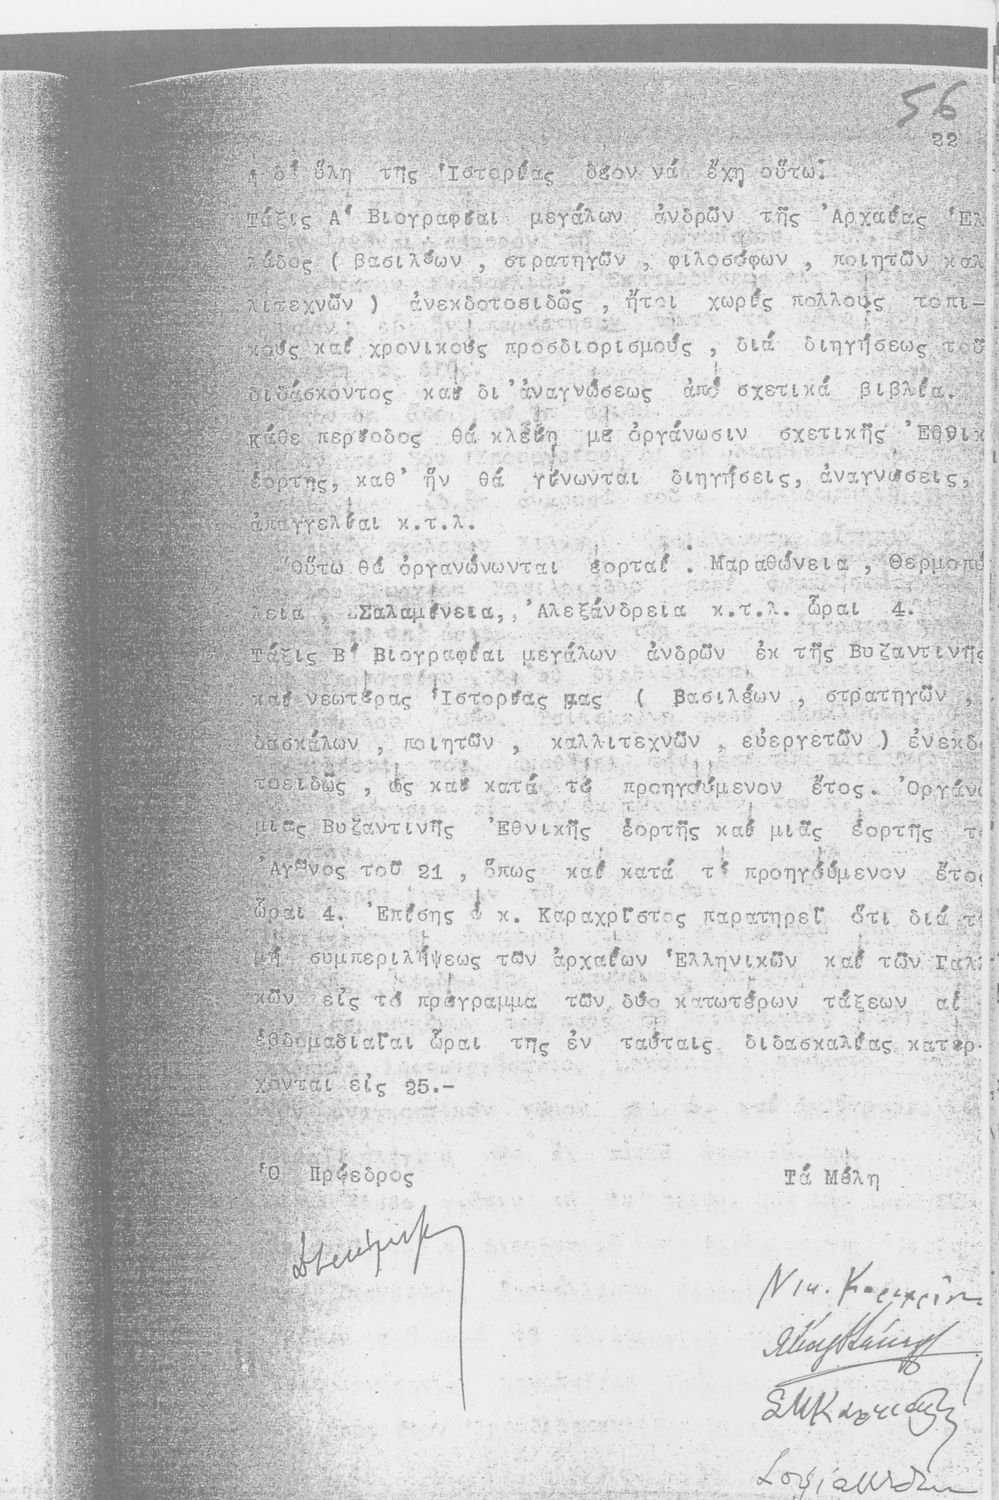 56
22
ἡ δέ ὕλη τῆς Ἱστορίας δέον νά ἔχῃ οὕτω:
Τάξις Α΄ Βιογραφίαι μεγάλων ἀνδρῶν τῆς Ἀρχαίας Ἑλ
λάδος ( βασιλέων , στρατηγῶν , φιλοσόφων , ποιητῶν καλ
λιτεχνῶν ) ἀνεκδοτοειδῶς , ἤτοι χωρίς πολλούς τοπι-
κούς καί χρονικούς προσδιορισμούς , διά διηγήσεως τοῦ
διδάσκοντος καί δι'ἀναγνώσεως ἀπό σχετικά βιβλία.
κάθε περίοδος θά κλείῃ με ὀργάνωσιν σχετικῆς Ἐθνικ
ἑορτῆς, καθ' ἥν θά γίνωνται διηγήσεις, ἀναγνώσεις,
ἀπαγγελίαι κ.τ.λ.
Οὕτω θά ὀργανώνωνται ἑορταί : Μαραθώνεια , Θερμοπύ
λεια , Σαλαμίνεια, Ἀλεξάνδρεια κ.τ.λ. ὧραι 4.
Τάξις Β΄ Βιογραφίαι μεγάλων ἀνδρῶν ἐκ τῆς Βυζαντινῆς
καί νεωτέρας Ἱστορίας μας ( Βασιλέων , στρατηγῶν ,
δασκάλων , ποιητῶν , καλλιτεχνῶν , εὐεργετῶν ) ἀνεκδο
τοειδῶς , ὡς καί κατά τό προηγούμενον ἔτος. Ὀργάνω
μιᾶς Βυζαντινῆς Ἐθνικῆς ἑορτῆς καί μιᾶς ἑορτῆς το
Ἀγῶνος τοῦ 21 , ὅπως καί κατά τό προηγούμενον ἔτος
ὧραι 4. Ἐπίσης ὁ κ. Καραχρῖστος παρατηρεῖ ὅτι διά τῆ
μή συμπεριλήψεως τῶν ἀρχαίων Ἑλληνικῶν καί τῶν Γαλλ
κῶν εἰς τό πρόγραμμα τῶν δύο κατωτέρων τάξεων αἱ
ἑβδομαδιαῖαι ὧραι τῆς ἐν ταύταις διδασκαλίας κατέρ-
χονται εἰς 25.-
Ὁ Πρόεδρος
Τά Μέλη
Νικ.